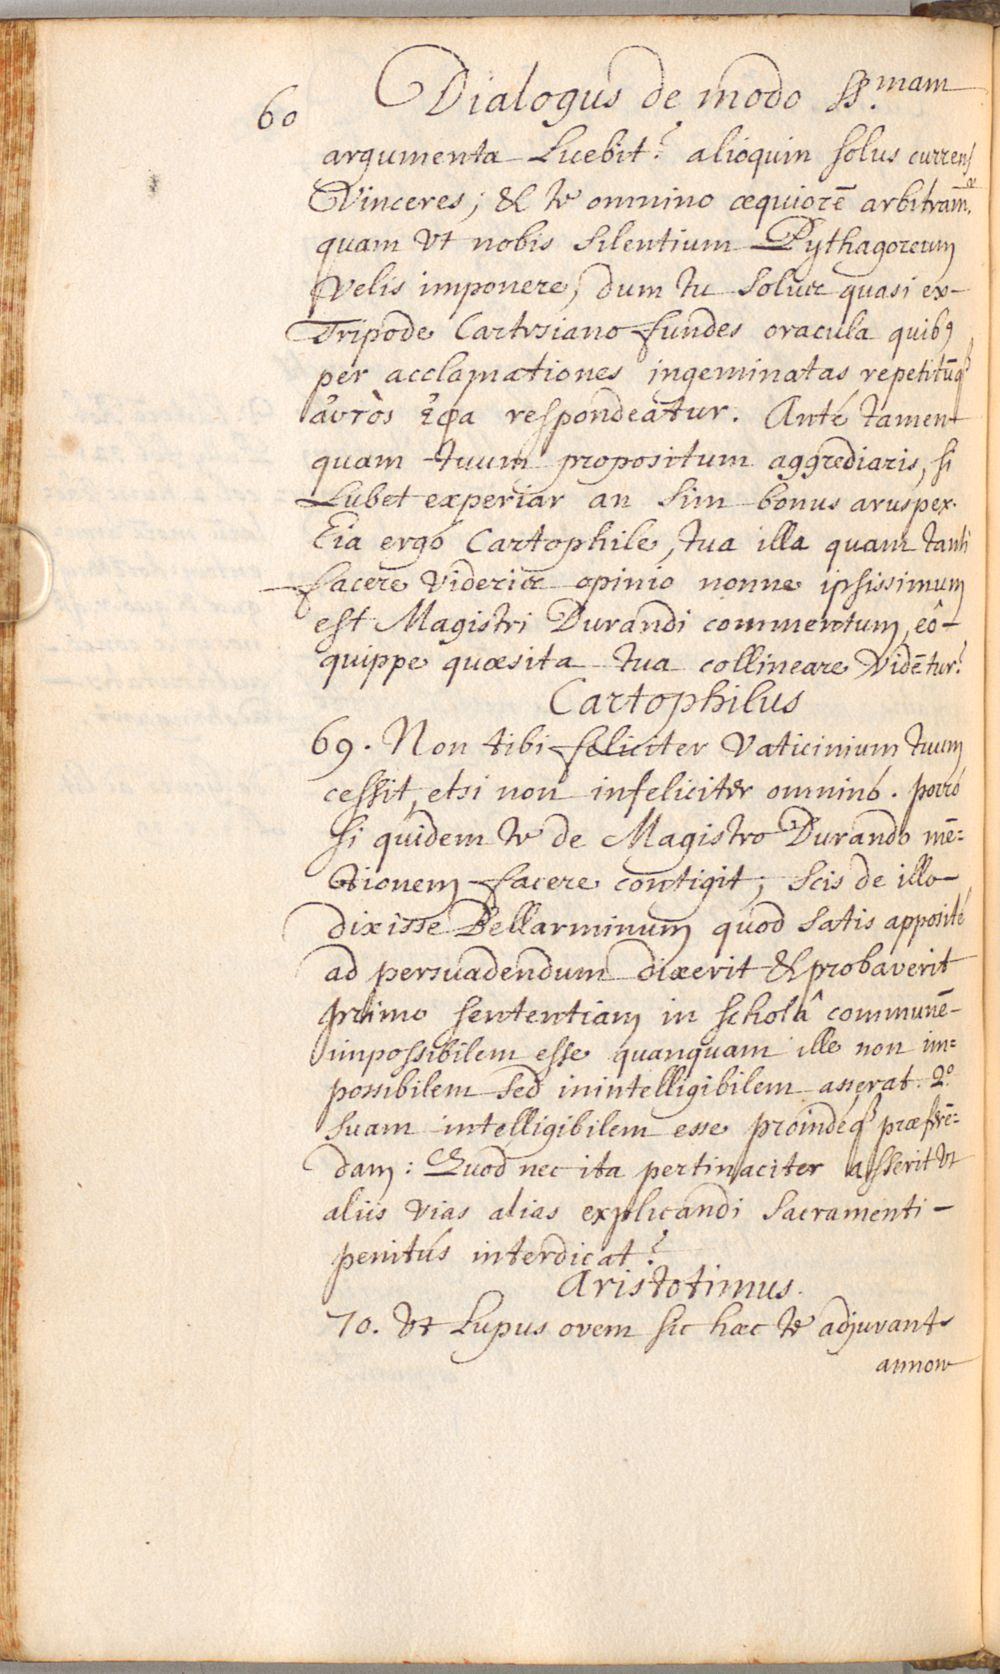 60
Dialogus de modo SS.mam
argumenta Licebit? alioquin solus currens
Vinceres; & te omnino æquiorē arbitram̄.
quam Vt nobis silentium Pythagoreum
Velis imponere, dum tu solus quasi ex-
Tripode Cartesiano fundes oracula quibꝫ
per acclamationes ingeminatas repetitūqꝫ
ἀυτὸς ἔφα respondeatur. Anté tamen
quam tuum propositum aggrediaris, si
Lubet experiar an sim bonus aruspex.
Eia ergó Cartophile, tua illa quam tanti
facere Videris opinio nonne ipsissimum
est Magistri Durandi commentum, eô-
quippe quæsita tua collineare Vidētur?
Cartophilus
69. Non tibi feliciter Vaticinium tuum
cessit, etsi non infeliciter omninó. porró
si quidem te de Magistro Durando mē=
tionem facere contigit; scis de illo
dixisse Bellarminum quod satis apposité
ad persuadendum dixerit & probaverit
primo sententiam in scholâ communē-
impossibilem esse quanquam ille non im=
possibilem sed inintelligibilem asserat. 2.º
suam intelligibilem esse proindéqꝫ præferē=
dam: Quod nec ita pertinaciter asserit Vt
aliis vias alias explicandi Sacramenti-
penitús interdicat?
Aristotimus.
70. Vt Lupus ovem sic hæc te adjuvant
annon